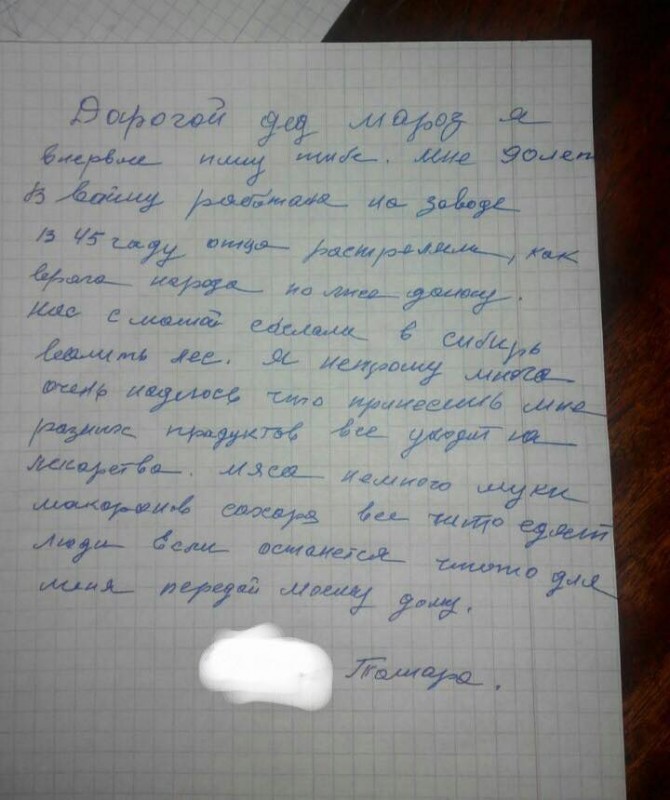 Дорогой дед мароз я
впервые пишу тибе. Мне 90 лет
В войну работала на заводе
В 45 гаду отца растреляли, как
врага народа
Нас с мамой сослали в сибирь
валить лес. Я непрошу много
очень надеюсь что принесешь мне
разных продуктов все уходит на
лекарства. мяса немного муки
макоронов сахара все что едят
люди если останется для
меня передай моему дому.
Тамара.